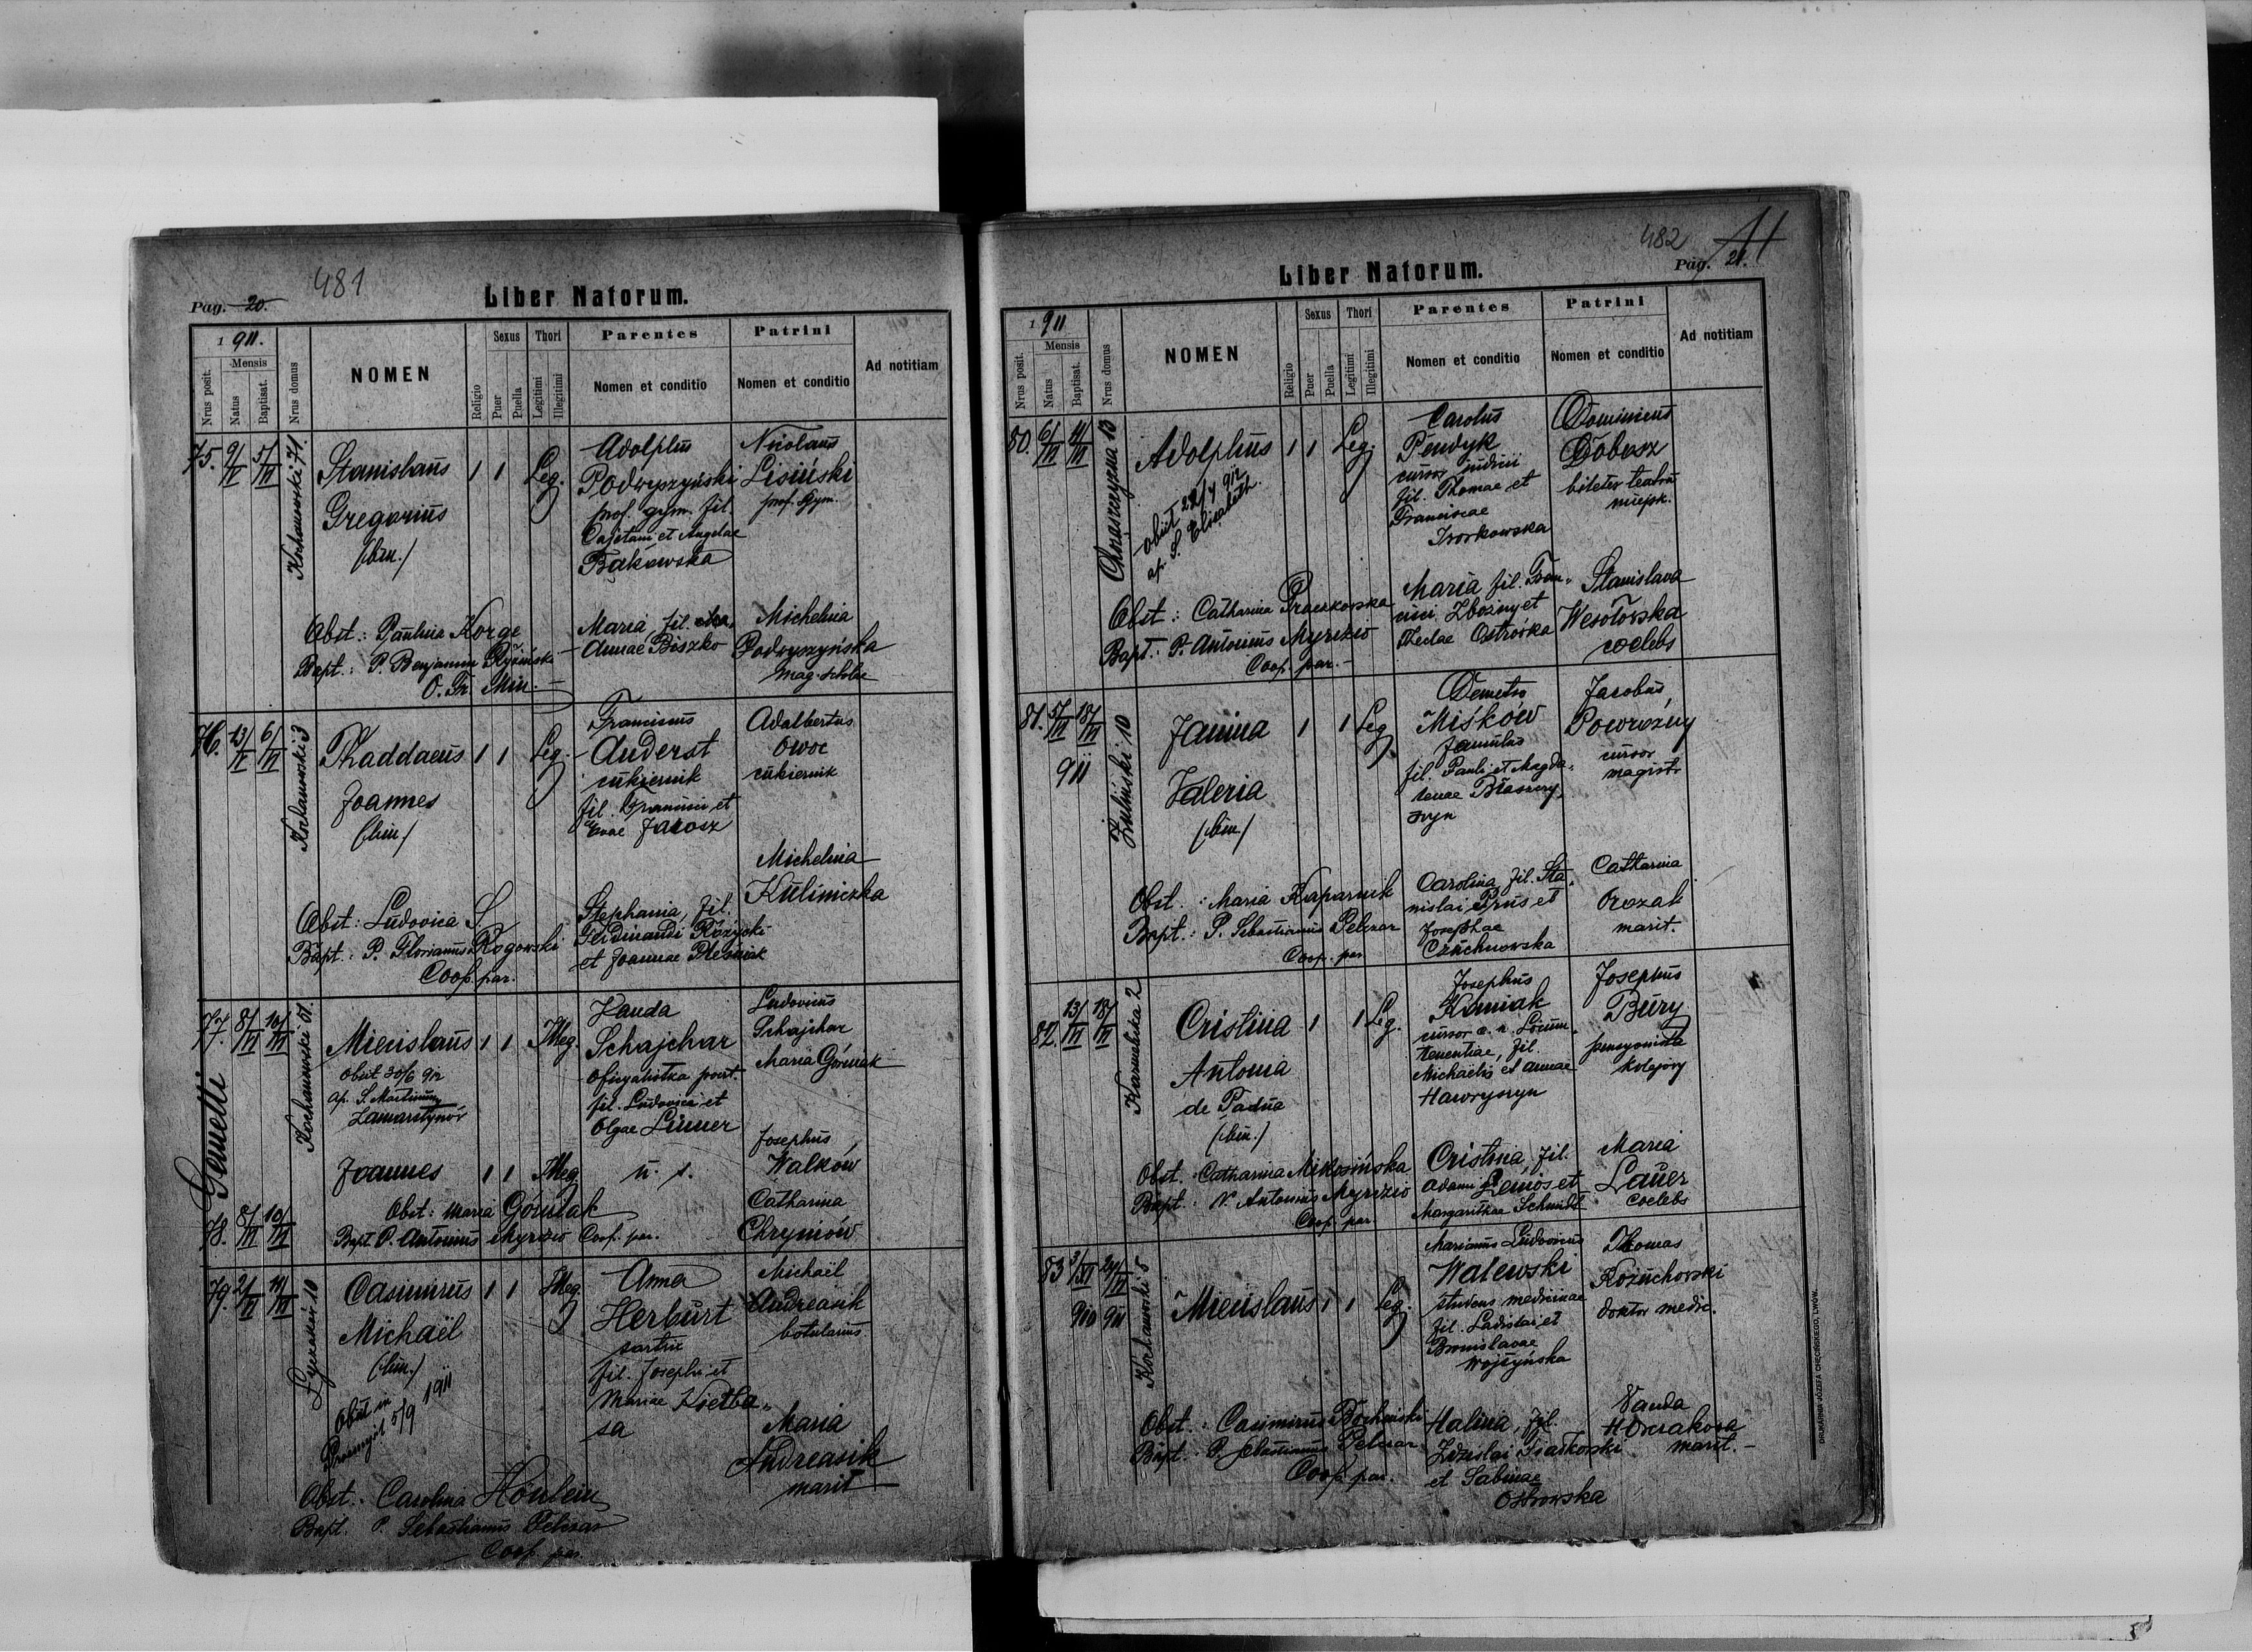 481
Pag. 20.
Liber Natorum.
1911.
Mensis
Nrus posit.
Natus
Baptisat.
Nrus domus
NOMEN
Religio
Sexus
Puer
Puella
Thori
Legitimi
Illegitimi
Parentes
Nomen et conditio
Patrini
Nomen et conditio
Ad notitiam
75. 9/V 5/VI
Kochanowski 71.
Stanislaus 1 1 Leg.
Gregorius
(bin.)
Adolphus
Podwyszyński
prof. gym. fil.
Cajetani et Angelae
Bąkowska
Nicolaus
Lisiński
prof. Gym.
Maria, fil.
Annae Boszko
Michelina
Podwyszyńska
mag. scholae
Obst.: Paulina Korge
Bapt.: P. Benjamin
O. Fr. Min.
76. 13/V 6/VI
Kochanowski 3
Thaddaeus 1 1 Leg.
Joannes
(bin.)
Franciscus
Anderst
cukiernik
fil. Francisci et
Evae Jarosz
Adalbertus
Owoc
cukiernik
Stephania, fil.
Ferdinandi Różycki
et Joannae
Michelina
Kuliniczka
Obst: Ludovica S
Bapt.: P. Florianus Rogowski
Coop. par.
Gemelli
77. 8/VI 10/VI
Kochanowski 61.
Miecislaus 1 1 Illeg.
obiit 30/6 912
ap. S. Martinum
Zamarstynów
Vanda
Schajchar
oficyalistka poczt.
fil. Ludovici et
Olgae Linner
Ludovicus
Schajchar
Maria Górniak
78. 8/VI 10/VI
Joannes 1 1 Illeg.
u. s.
Josephus
Walków
Catharina
Chryniów
Obst: Maria Górniak
Bapt. P. Antonius Myrdzio Coop. par.
79. 2/VI 11/VI
Łyczaków 10
Casimirus 1 1 Illeg.
Michaël
(bin.)
Obiit in
Przemyśl 5/9 1911
Anna
Herburt
sartrix
fil. Josephi et
Mariae Kiełba-
sa
Michaël
Andreasik
botularius
Maria
Andreasik
marit
Obst. Carolina Hönlein
Bapt. P. Sebastianus Pelczar
Coop par.
482
Pag. 21.
Liber Natorum.
1911
Mensis
Nrus posit.
Natus
Baptisat.
Nrus domus
NOMEN
Religio
Sexus
Puer
Puella
Thori
Legitimi
Illegitimi
Parentes
Nomen et conditio
Patrini
Nomen et conditio
Ad notitiam
80. 6/VI 11/VI
Chrząszczyzna 13
Adolphus 1 1 Leg.
obiit 22/4 912
ap. S. Elisabeth.
Carolus
Pendyk
cursor
fil. Thomae et
Franciscae
Dominicus
Dobosz
bileter teatru
miejsk.
Maria fil. Fran-
cisci Zbożny et
Theclae Ostrówka
Stanislava
Wesołowska
coelebs
Obst.: Catharina Praczkowska
Bapt.: P. Antonius Myrdzio
Coop. par.
81. 5/VI 18/VI
911
Żuliński 10
Janina 1 1 Leg
Valeria
(bin.)
Demetro
Miśków
famulus
fil. Pauli et Magda-
lenae Błaszczy-
szyn
Jacobus
Powroźny
cursor
magistr
Carolina, fil. Sta-
nislai Prus et
Josephae
Czuchnowska
Catharina
Orozak
marit.
Obst.: Maria Kaparnik
Bapt.: P. Sebastianus Pelczar
Coop. par
82. 13/VI 18/VI
Karmelicka 2
Cristina 1 1 Leg.
Antonia
de Padua
(bin.)
Josephus
Kimiak
cursor c. r. Locum-
tenentiae, fil.
Michaelis et Annae
Hawryszyn
Josephus
Bury
pensyonista
kolejowy
Cristina, fil.
Adami Lenios et
Margarithae Schmidt
Maria
Lauer
coelebs
Obst.: Catharina Mikosińska
Bapt.: P. Antonius Myrdzio
Coop. par
83 3/XI 24/VI
910 911
Kochanowski 8
Miecislaus 1 1 Leg.
Marianus Ludovicus
Walewski
studens medicinae
fil. Ladislai et
Bronislavae
Wojszyńska
Thomas
Kożuchowski
doktor medic.
Halina, fil.
Zdzislai
et Sabinae
Ostrowska
Vanda
marit.
Obst.: Casimirus Bocheński
Bapt.: P. Sebastianus Pelczar
Coop. par.
DRUKARNIA JÓZEFA CHĘCIŃSKIEGO, LWÓW.